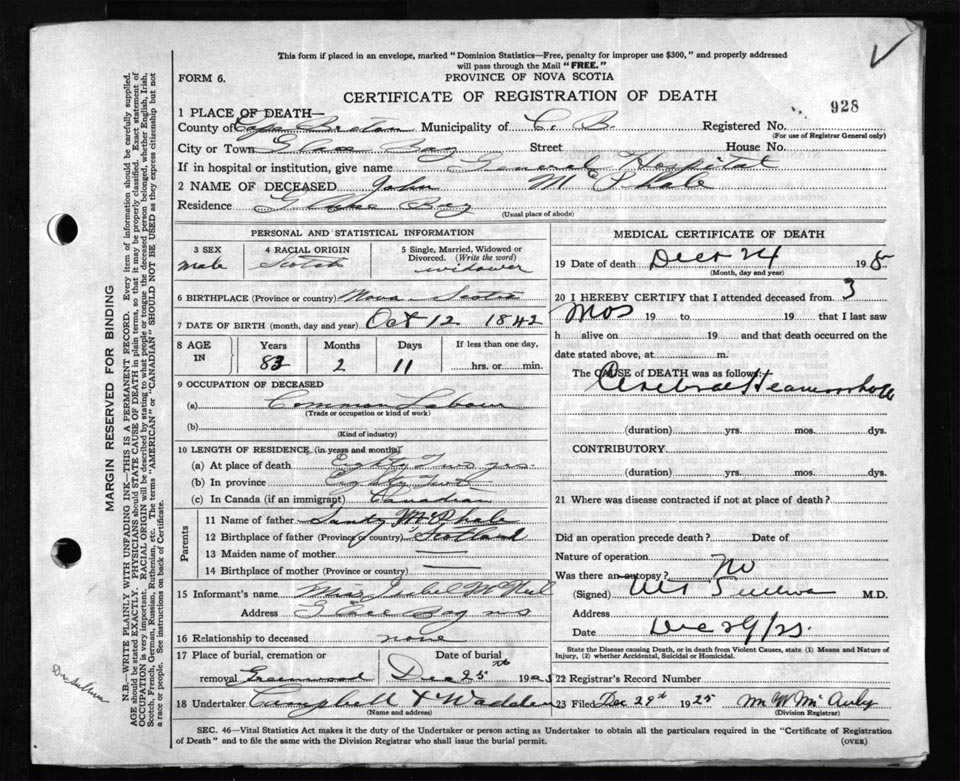 This form if placed in an envelope, marked "Dominion Statistics—Free, penalty for improper use $300," and properly addressed
will pass through the Mail "FREE."
FORM 6.
PROVINCE OF NOVA SCOTIA
CERTIFICATE OF REGISTRATION OF DEATH
928
1 PLACE OF DEATH—
County of Cape Breton Municipality of C. B. Registered No.
(For use of Registrar General only)
City or Town Glace Bay Street House No.
If in hospital or institution, give name General Hospital
2 NAME OF DECEASED John McPhale
Residence Glace Bay
(Usual place of abode)
PERSONAL AND STATISTICAL INFORMATION
3 SEX 4 RACIAL ORIGIN 5 Single, Married, Widowed or Divorced. (Write the word)
male Scotch widower
6 BIRTHPLACE (Province or country) Nova Scotia
7 DATE OF BIRTH (month, day and year) Oct 12 1842
8 AGE IN Years Months Days If less than one day,
83 2 11 hrs. or min.
9 OCCUPATION OF DECEASED
(a) Common Labour
(Trade or occupation or kind of work)
(b)
(Kind of industry)
10 LENGTH OF RESIDENCE (in years and months)
(a) At place of death Eighty Two yrs.
(b) In province Eighty Two
(c) In Canada (if an immigrant) Canadian
Parents
11 Name of father Sandy McPhale
12 Birthplace of father (Province or country) Scotland
13 Maiden name of mother —
14 Birthplace of mother (Province or country) —
15 Informant's name Miss Isabel McNeil
Address Glace Bay NS
16 Relationship to deceased none
17 Place of burial, cremation or Date of burial
removal Greenwood Dec 25th 1925
18 Undertaker Campbell & Wadden
(Name and address)
MEDICAL CERTIFICATE OF DEATH
19 Date of death Decr 24 19 5
(Month, day and year)
20 I HEREBY CERTIFY that I attended deceased from 3
Mos 19 to 19 that I last saw
h alive on 19 and that death occurred on the
date stated above, at m.
The CAUSE of DEATH was as follows:
Cerebral Heamorrhage
(duration) yrs. mos. dys.
CONTRIBUTORY
(duration) yrs. mos. dys.
21 Where was disease contracted if not at place of death?
Did an operation precede death? Date of
Nature of operation
Was there an autopsy? No
(Signed) Sullivan M.D.
Address
Date Dec 29/25
State the Disease causing Death, or in death from Violent Causes, state (1) Means and Nature of
Injury, (2) whether Accidental, Suicidal or Homicidal.
22 Registrar's Record Number
23 Filed Dec 29th 1925 McAuley
(Division Registrar)
SEC. 46—Vital Statistics Act makes it the duty of the Undertaker or person acting as Undertaker to obtain all the particulars required in the "Certificate of Registration
of Death" and to file the same with the Division Registrar who shall issue the burial permit. (OVER)
MARGIN RESERVED FOR BINDING
N.B.—WRITE PLAINLY WITH UNFADING INK—THIS IS A PERMANENT RECORD. Every item of information should be carefully supplied.
AGE should be stated EXACTLY. PHYSICIANS should STATE CAUSE OF DEATH in plain terms, so that it may be properly classified. Exact statement of
OCCUPATION is very important. RACIAL ORIGIN will be described by stating to what people or tongue the deceased person belonged, whether English, Irish,
Scotch, French, German, Russian, Ruthenian, etc. The terms "AMERICAN" or "CANADIAN" SHOULD NOT BE USED as they express citizenship but not
a race or people. See instructions on back of Certificate.
Dr Sullivan